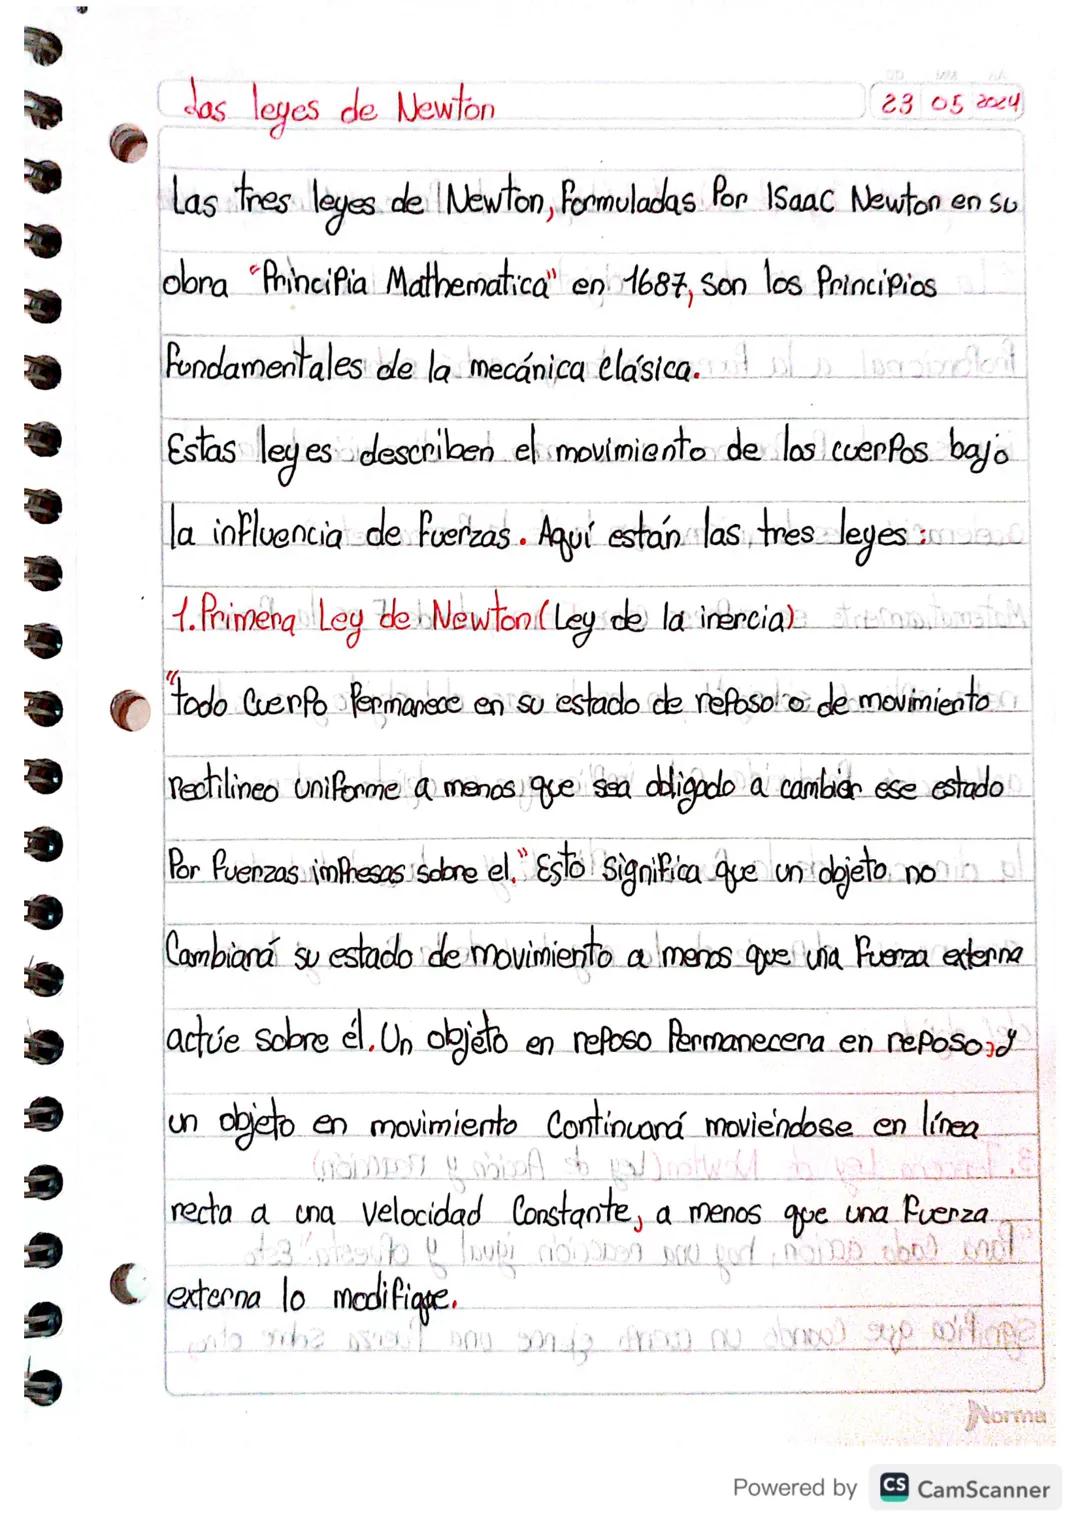 Las leyes de Newton
DD MM AA
23 05 2024
Las tres leyes de Newton, formuladas Por Isaac Newton en su
obra "Principia Mathematica" en 1687, son los Principios
fundamentales de la mecánica clásica.
Estas leyes describen el movimiento de los cuerpos bajo
la influencia de fuerzas. Aquí están las tres leyes:
1. Primera Ley de Newton (Ley de la inercia)
"todo cuerpo Permanece en su estado de reposo o de movimiento
rectilineo uniforme a menos que sea obligado a cambiar ese estado
Por fuerzas impresas sobre el." Esto significa que un objeto no
Cambiará su estado de movimiento a menos que una fuerza externa
actúe sobre él. Un objeto en reposo Permanecera en reposo, y
un objeto en movimiento Continuará moviéndose en línea
recta a una velocidad Constante, a menos que una fuerza
externa lo modifique.
Norma
Powered by CS CamScanner